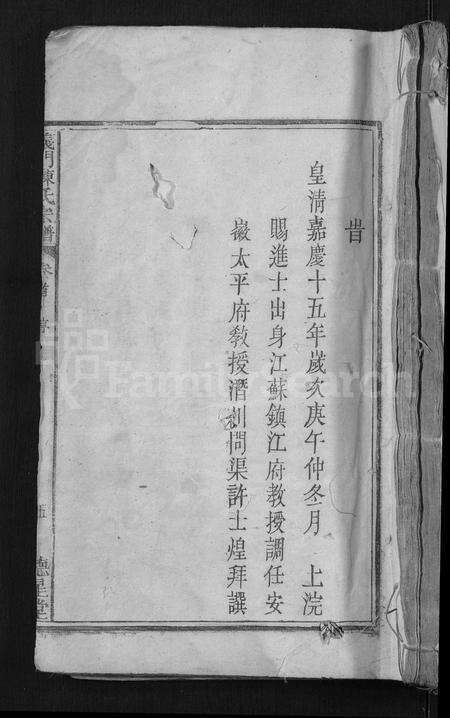 皆
皇清嘉慶十五年歲次庚午仲冬月 上浣
賜進士出身江蘇鎮江府教授調任安
徽太平府教授潛川問渠許士煌拜譔
義門陳氏宗譜
卷首
德星堂
FamilySearch